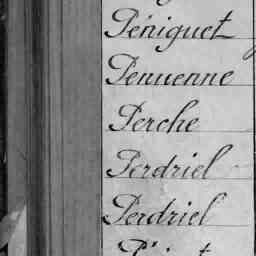 Péniguet
Penuenne
Perche
Perdriel
Perdriel